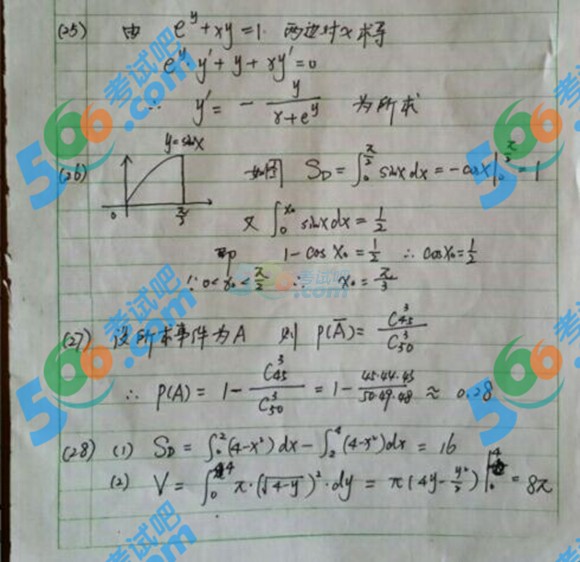 (25) 由 e^y+xy=1. 两边对x求导
e^y·y'+y+xy'=0
∴ y'= - y/(x+e^y) 为所求
y=sinx
(26) 如图 S_D=∫_0^{π/2} sinxdx=-cosx|_0^{π/2}=1
0 π/2
又 ∫_0^{x₀} sinxdx=1/2
即 1-cosx₀=1/2 ∴ cosx₀=1/2
∵0<x₀<π/2 ∴ x₀=π/3
(27) 设所求事件为A 则 P(Ā)=C_{45}^3/C_{50}^3
∴ P(A)=1-C_{45}^3/C_{50}^3=1-45·44·43/50·49·48≈0.28
(28) (1) S_D=∫_0^2(4-x²)dx-∫_2^4(4-x²)dx=16
(2) V=∫_0^4 π·(√4-y)²·dy=π(4y-y²/2)|_0^4=8π
566考试吧.com
566考试吧.com
考试吧
566考试吧.com
566考试吧.com